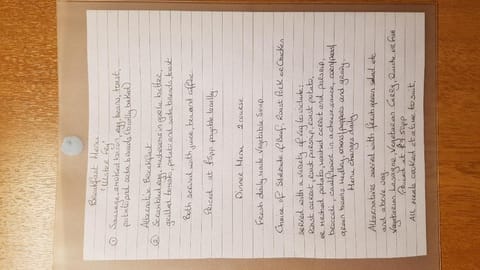 Breakfast Menu
"Ulster Fry"
① Sausage, smoked bacon, egg, beans, toast,
potato and soda breads (locally baked)
Alternative Breakfast
② Scrambled egg, mushrooms in garlic butter,
grilled tomato, potato and soda breads, toast
Both served with juice, tea and coffee
Priced at payable locally
Dinner Menu 2 course
Fresh daily made Vegetable Soup
Choice of Silverside of Beef, Roast Pork or Chicken
served with a variety of veg to include;
Roast carrot, roast parsnip, roast potato,
or mashed potato, mashed carrot and parsnip,
broccoli, cauliflower in a cheese sauce,
green beans, medley onion/peppers and gravy
Menu changes daily
Alternatives served with fresh green salad etc
and above veg
Vegetarian Lasagne, Vegetarian Curry, Quiche or Fish
Priced at pp
All meals cooked at a time to suit.